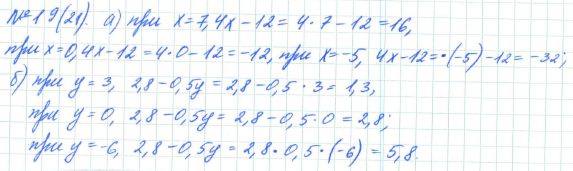 № 19(21). а) при x=7, 4x-12=4·7-12=16,
при x=0, 4x-12=4·0-12=-12, при x=-5, 4x-12=·(-5)-12=-32;
б) при y=3, 2,8-0,5y=2,8-0,5·3=1,3,
при y=0, 2,8-0,5y=2,8-0,5·0=2,8;
при y=-6, 2,8-0,5y=2,8·0,5·(-6)=5,8.